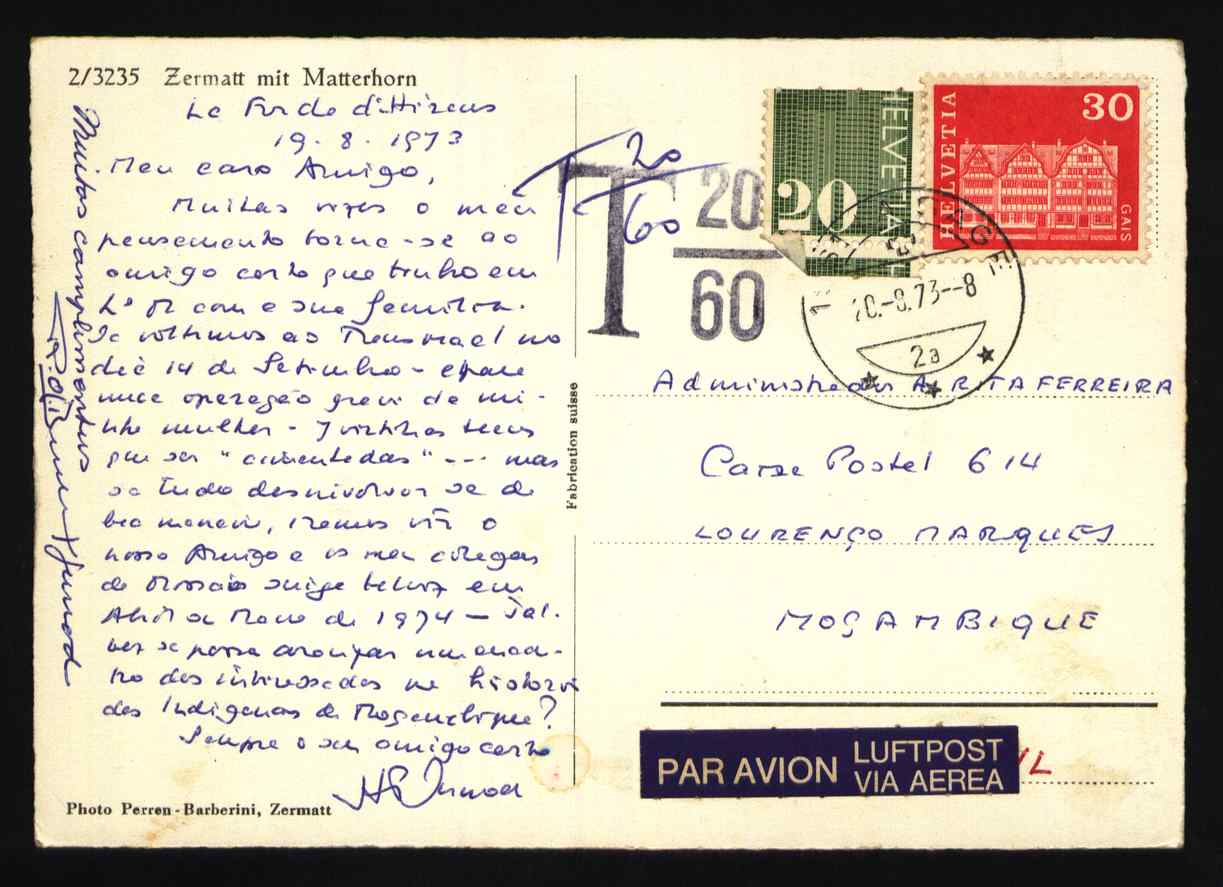 2/3235 Zermatt mit Matterhorn
19.8.1973
Meu caro Amigo,
Muitas vezes o meu
pensamento torna-se ao
amigo certo que tenho em
L° M com a sua familia.
Se voltimos ao Transvaal no
dia 14 de Setembro -
uma operação grave de mi-
nha mulher -
que ser "aumentadas" --- mas
se tudo desenvolver se de
boa maneira, iremos vêr o
nosso Amigo e os meus colegas
da Missão suiça talvez em
Abril or Maio de 1974 — Tal-
vez se possa arranjar um encon-
tro dos interessados na historia
dos Indigenas de Moçambique?
Sempre o seu amigo certo
H P Junod
Muitos cumprimentos
Junod
Photo Perren-Barberini, Zermatt
Fabrication suisse
T 20
60
T 20
60
HELVETIA
20
HELVETIA
30
GAIS
20.-8.73--8
2a
A. RITA FERREIRA
Caixa Postal 614
LOURENÇO MARQUES
MOÇAMBIQUE
PAR AVION LUFTPOST
VIA AEREA